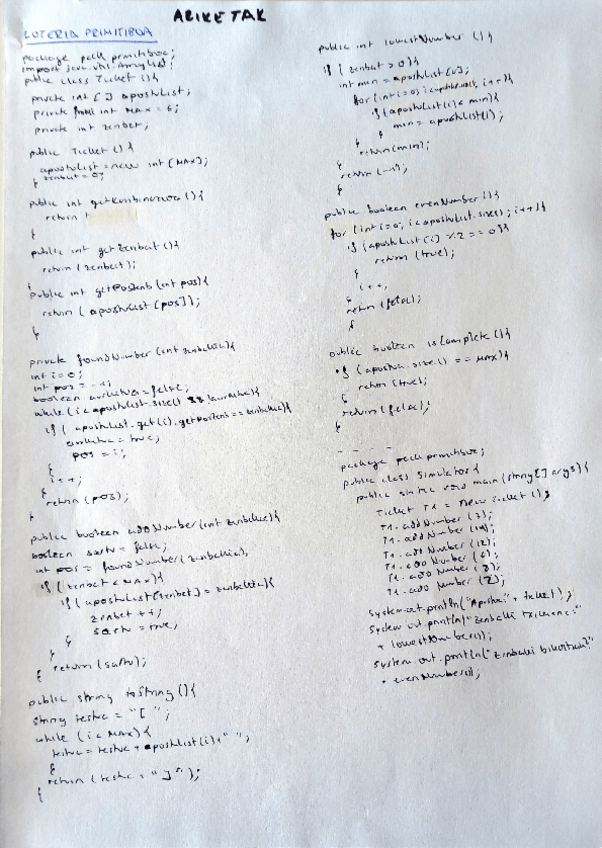 ARIKETAK
LOTERIA PRIMITIBOA
package pack primitiboa;
import java.util.ArrayList;
public class Ticket (){
private int [] apostuList;
private final int MAX = 6;
private int zenbat;
public Ticket () {
apostuList = new int [MAX];
zenbat = 0;
}
public int getKonbinazioa () {
return
}
public int getZenbat () {
return (zenbat);
public int getPosZenb (int pos){
return (apostuList [pos]);
}
private foundNumber (int zenbakia){
int i = 0;
int pos = -1;
boolean aurkitua = false;
while (i < apostuList.size() && !aurkitua){
if ( apostuList.get(i). == zenbakia){
aurkitua = true;
pos = i;
}
i++;
}
return (pos);
}
public boolean addNumber (int zenbakia){
boolean sartu = false;
int pos = foundNumber (zenbakia);
if (zenbat < MAX){
if (apostuList[zenbat] = zenbakia){
zenbat ++;
sartu = true;
}
}
return (sartu);
public string toString () {
string testua = "[ ";
while (i < MAX) {
testua = testua + apostuList(i) + " ";
}
return (testua + "]");
}
public int lowestNumber () {
if ( zenbat > 0 ) {
int min = apostuList [0];
for (int i = 0; i++){
if (apostuList(i) < min){
min = apostuList(i);
}
}
return (min);
}
return (-1);
}
public boolean evenNumber (){
for (int i=0; i < apostuList.size(); i++){
if (apostuList [i] % 2 == 0){
return (true);
}
i++;
}
return (false);
}
public boolean isComplete () {
if (apostua.size() == MAX){
return (true);
}
return (false);
}
package pack primitiboa;
public class Simulator {
public static void main (string [] args) {
Ticket T1 = new Ticket ();
T1. addNumber (3);
T1. addNumber
T1. addNumber (12);
T1. addNumber (6);
T1. addNumber
T1. addNumber (2);
System.out.println(" + ticket);
System.out.println("Zenbaki txikiena:"
+ lowestNumber());
System.out.println("Zenbaki bikoitiak?"
+ evenNumber());